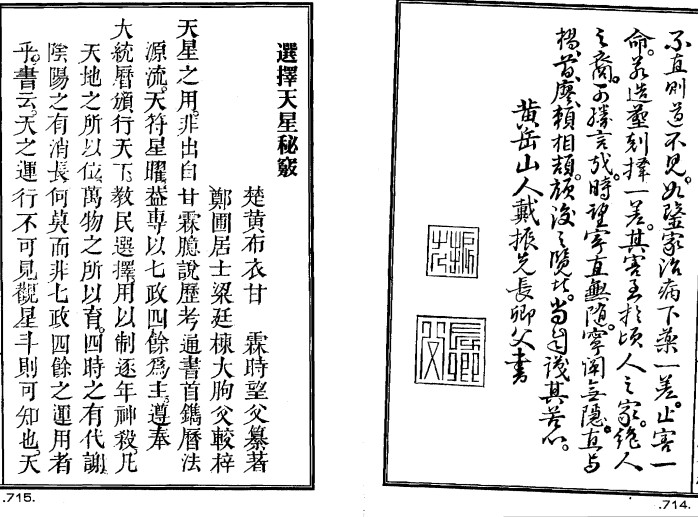 不直則道不見。如醫家治病下藥一差。止害一
命。若造塟剋擇一差。其害至於頃人之家。絶人
之裔。可勝言哉。時望寧直無随。寧闡無隱。直与
楊曾廖頼相頡頏。後之覽此。當自諒其苦心。
黄岳山人戴振先長卿父書
.714.
選擇天星秘竅
楚黄布衣甘　霖時望父纂著
鄭圃居士梁廷棟大胸父較梓
天星之用。非出自甘霖臆說歷考通書首鐫曆法
源流。天符星曜葢專以七政四餘為主。遵奉
大統曆頒行天下。教民選擇用以制逐年神殺。凡
天地之所以位。萬物之所以育。四時之有代謝
陰陽之有消長何莫而非七政四餘之運用者
乎。書云。天之運行不可見觀星斗則可知也。天
.715.